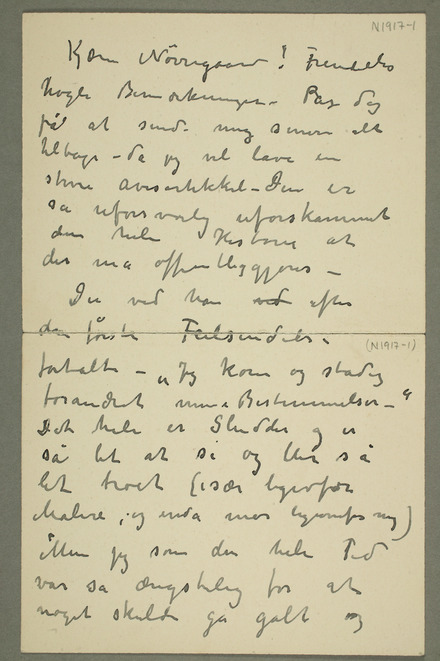 N1917-1
Kjære Nörregaard! Fremdeles
nogle Bemærkninger. Bær dog
få at sende mig senere alt
tilbage – da jeg vil lave en
större avisartikkel – Den er
så uforsvarlig uforskammet
den hele Historie at
det må offentliggjöres –
Du ved han ved efter
den förste Feilsendelse
fortalte – „Jeg kom og stadig
forandret mine Bestemmelser –"
Det hele er Sludder og er
så let at si og blir så
let troet (især ligeoverfor
Malere, og enda mer ligeoverfor mig)
Men jeg som den hele Tid
var så ængstelig for at
noget skulde gå galt og
(N1917-1)